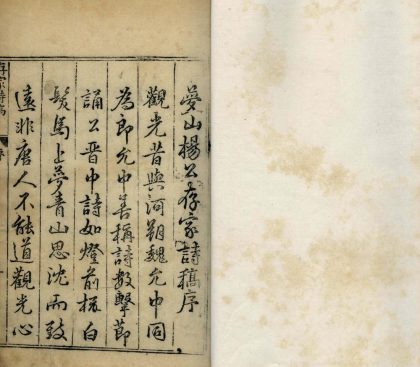 夢山楊公存家詩稿序
觀光昔與河朔魏允中同
為郎允中善稱詩數擊節
誦公晉中詩如燈前梳白
髮馬上夢青山思沈而致
遠非唐人不能道觀光心
存家詩稿
序